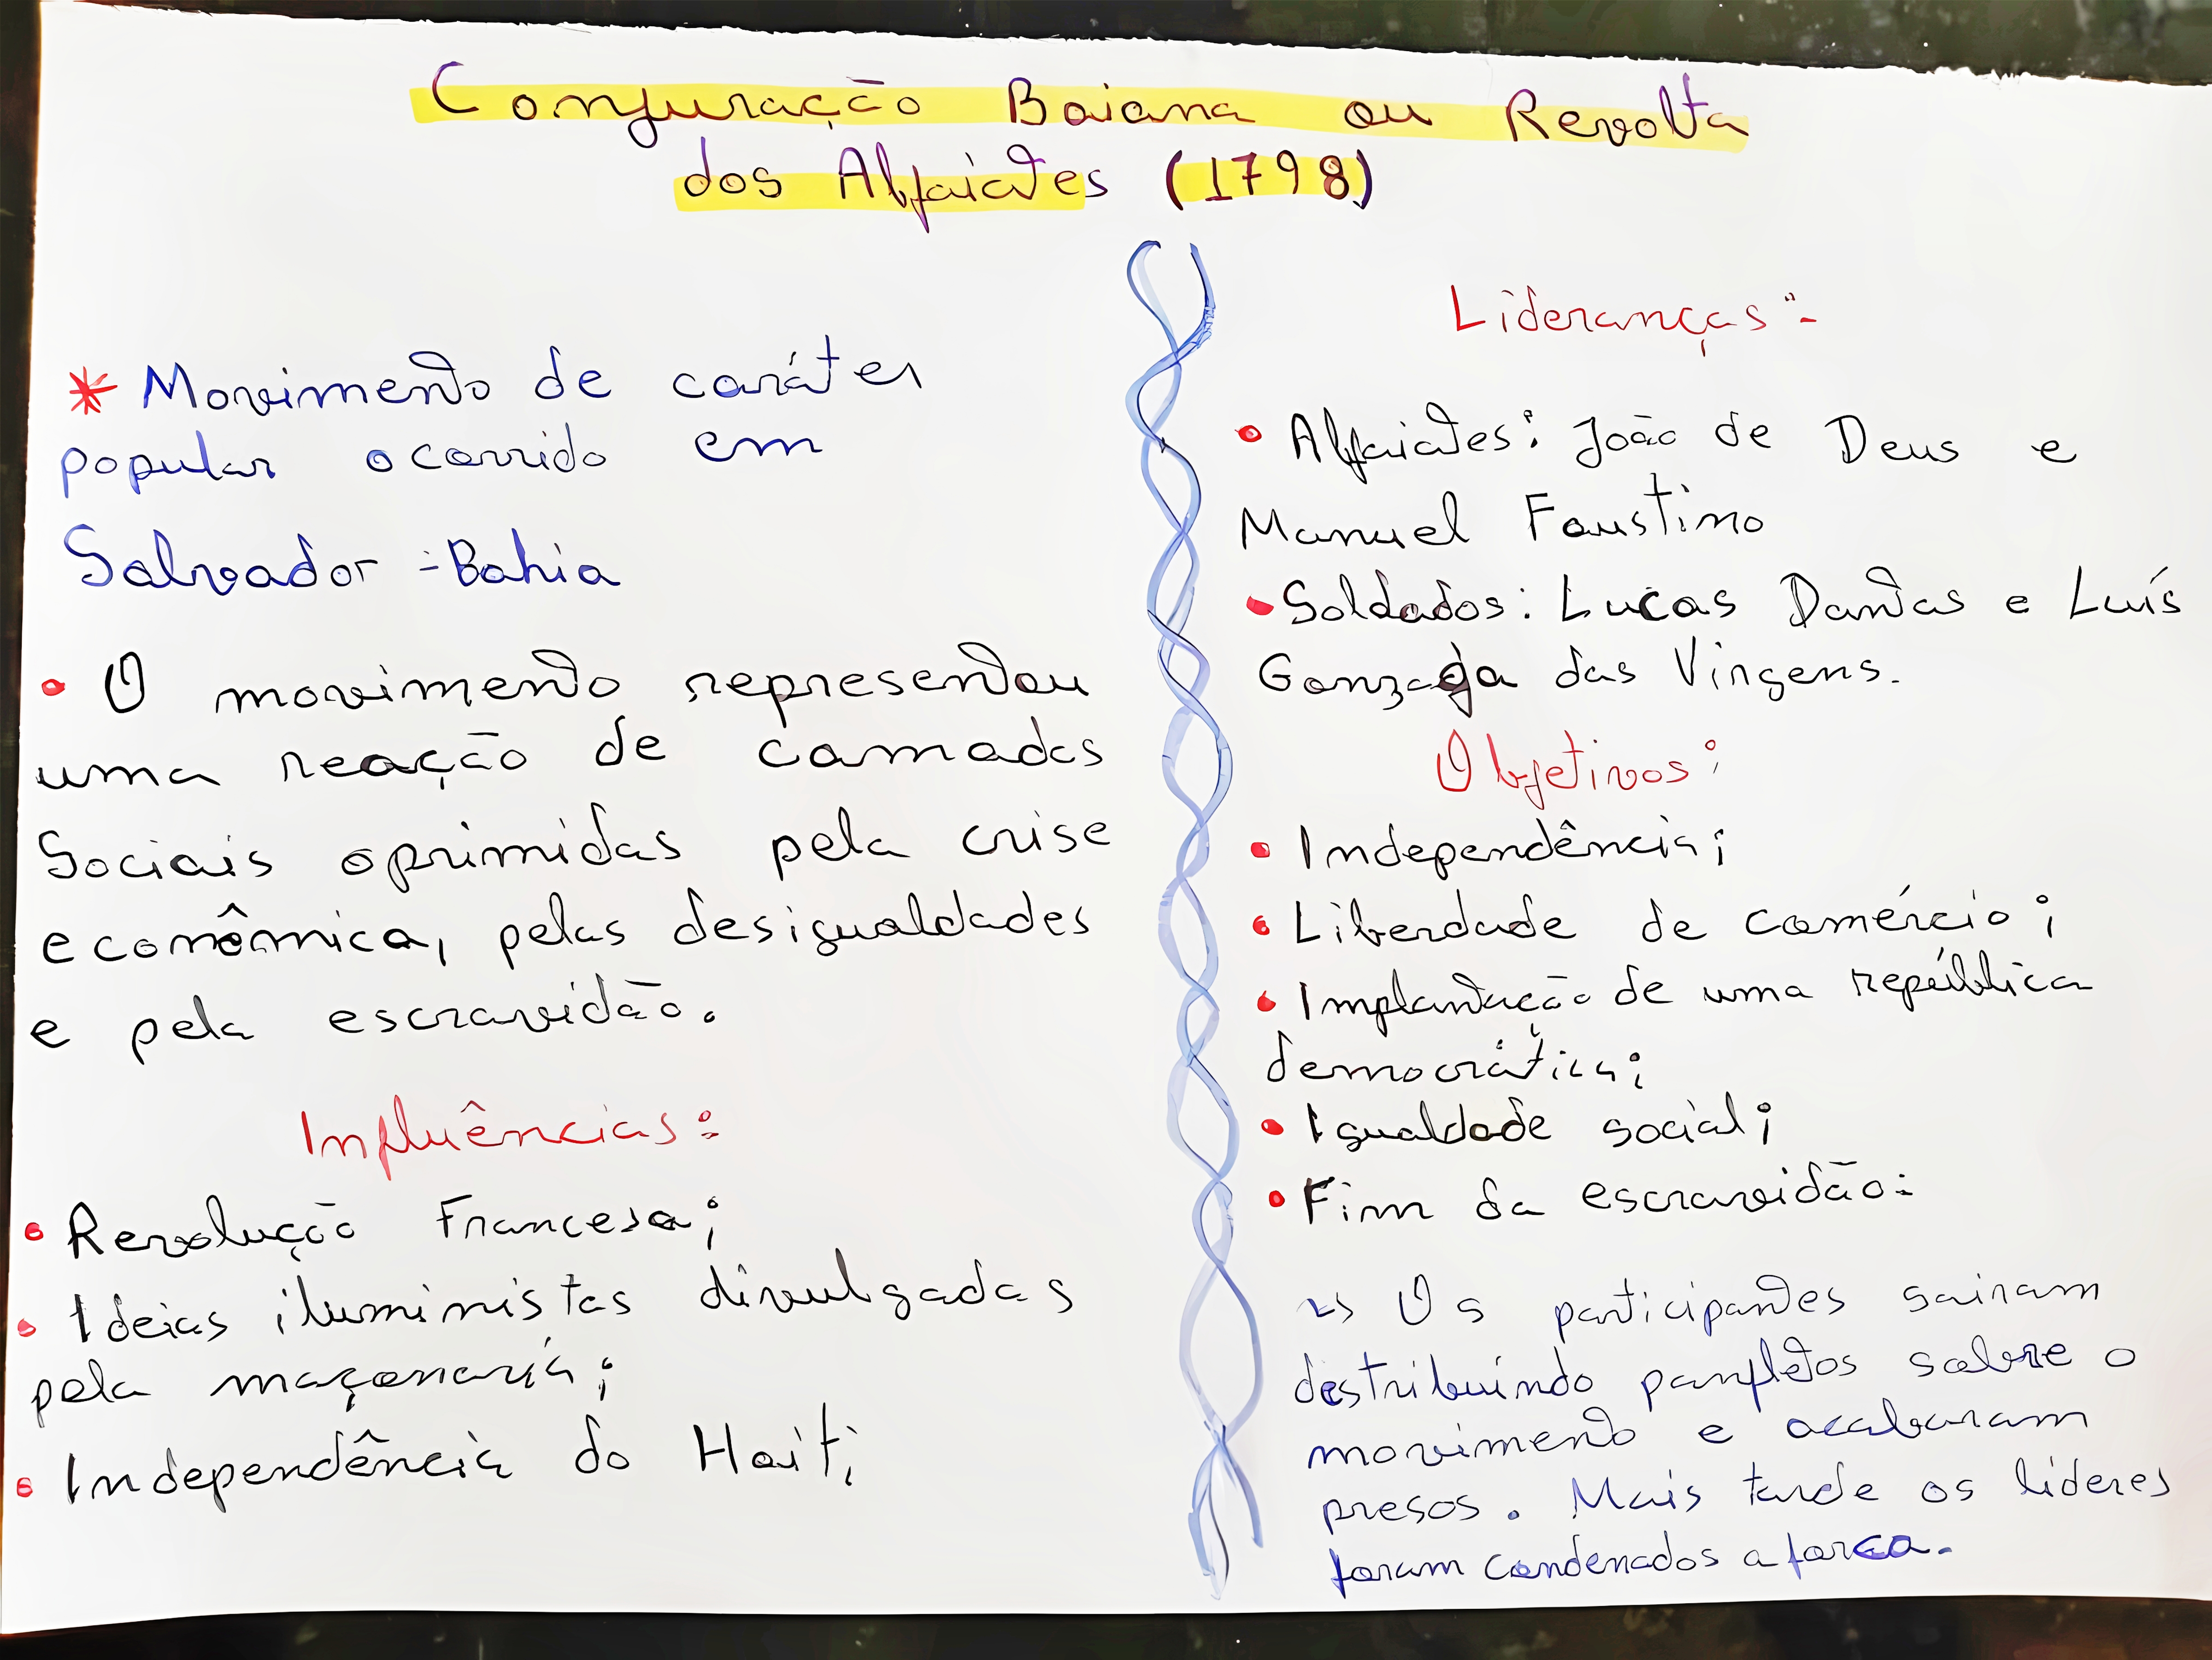 Conjuração Baiana ou Revolta
dos Alfaiates (1798)
* Movimento de caráter
popular ocorrido em
Salvador - Bahia
• O movimento representou
uma reação de camadas
Sociais oprimidas pela crise
econômica, pelas desigualdades
e pela escravidão.
Influências:
• Revolução Francesa;
• Ideias iluministas divulgadas
pela maçonaria;
• Independência do Haiti
Lideranças:
• Alfaiates: João de Deus e
Manuel Faustino
• Soldados: Lucas Dantas e Luís
Gonzaga das Virgens.
Objetivos:
• Independência;
• Liberdade de comércio;
• Implantação de uma república
democrática;
• Igualdade social;
• Fim da escravidão.
↳ Os participantes sairam
destribuindo panfletos sobre o
movimento e acabaram
presos. Mais tarde os líderes
foram condenados a forca.